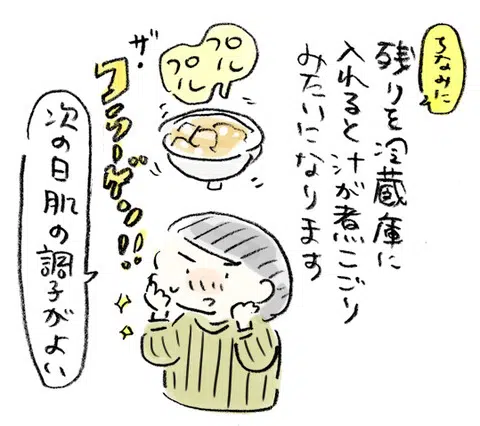 ちなみに
残りを冷蔵庫に
入れると汁が煮こごり
みたいになります
プル
プル
ザ・
コラーゲン!!
次の日肌の調子がよい